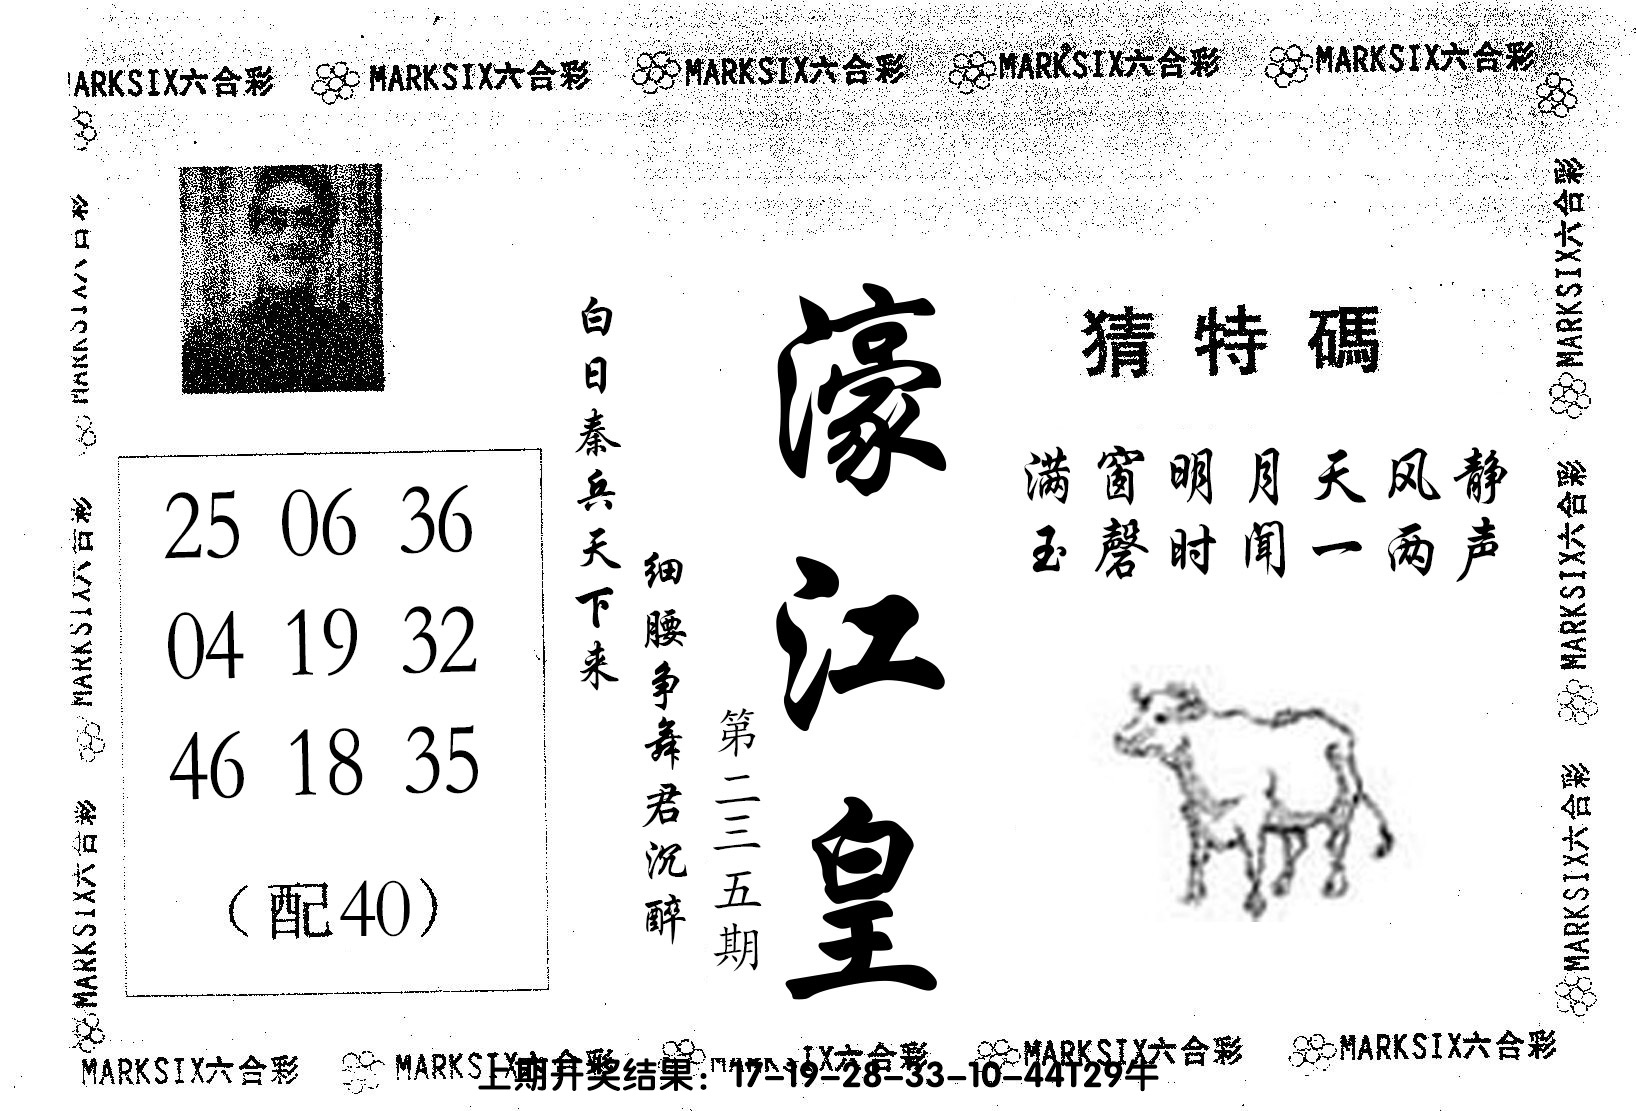 MARKSIX六合彩 MARKSIX六合彩 MARKSIX六合彩 MARKSIX六合彩 MARKSIX六合彩
MARKSIX六合彩
MARKSIX六合彩
MARKSIX六合彩
MARKSIX六合彩
MARKSIX六合彩
MARKSIX六合彩
25 06 36
04 19 32
46 18 35
（配40）
白日秦兵天下来
细腰争舞君沉醉
第二三五期
濠江皇
猜特碼
满窗明月天风静
玉磬时闻一两声
MARKSIX六合彩 MARKSIX六合彩 MARKSIX六合彩 MARKSIX六合彩 MARKSIX六合彩
上期开奖结果：17-19-28-33-10-44T29牛